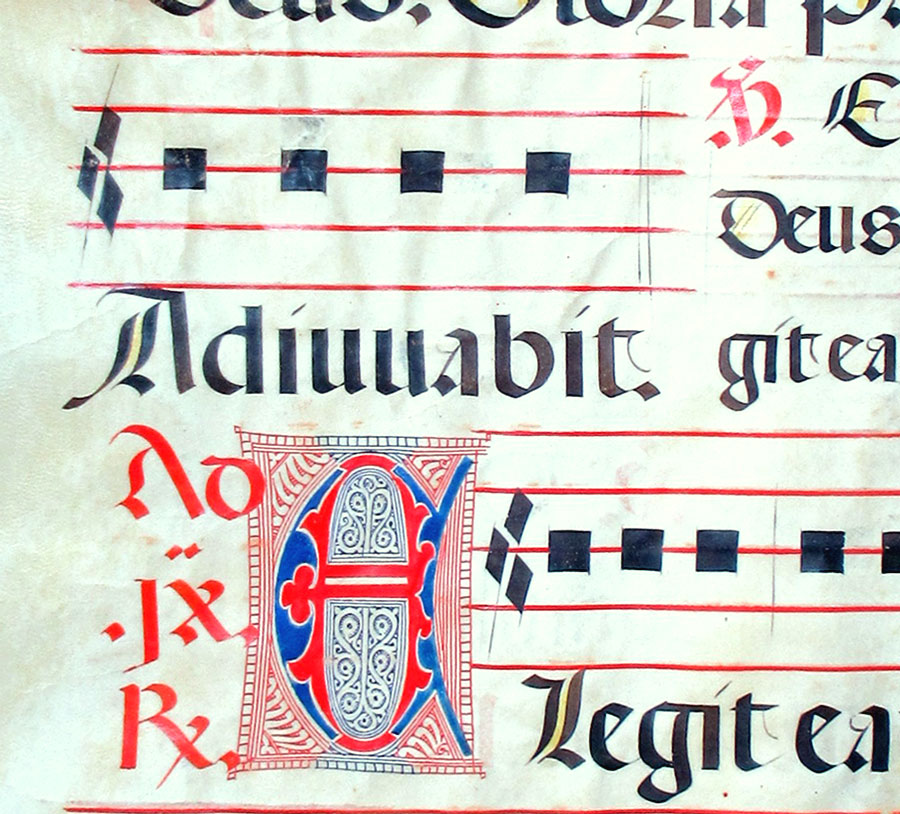 Deus. Gloria p
℣. E
Deus
Adiuuabit. git ea
Ad
.ix.
℞. E Legit ea